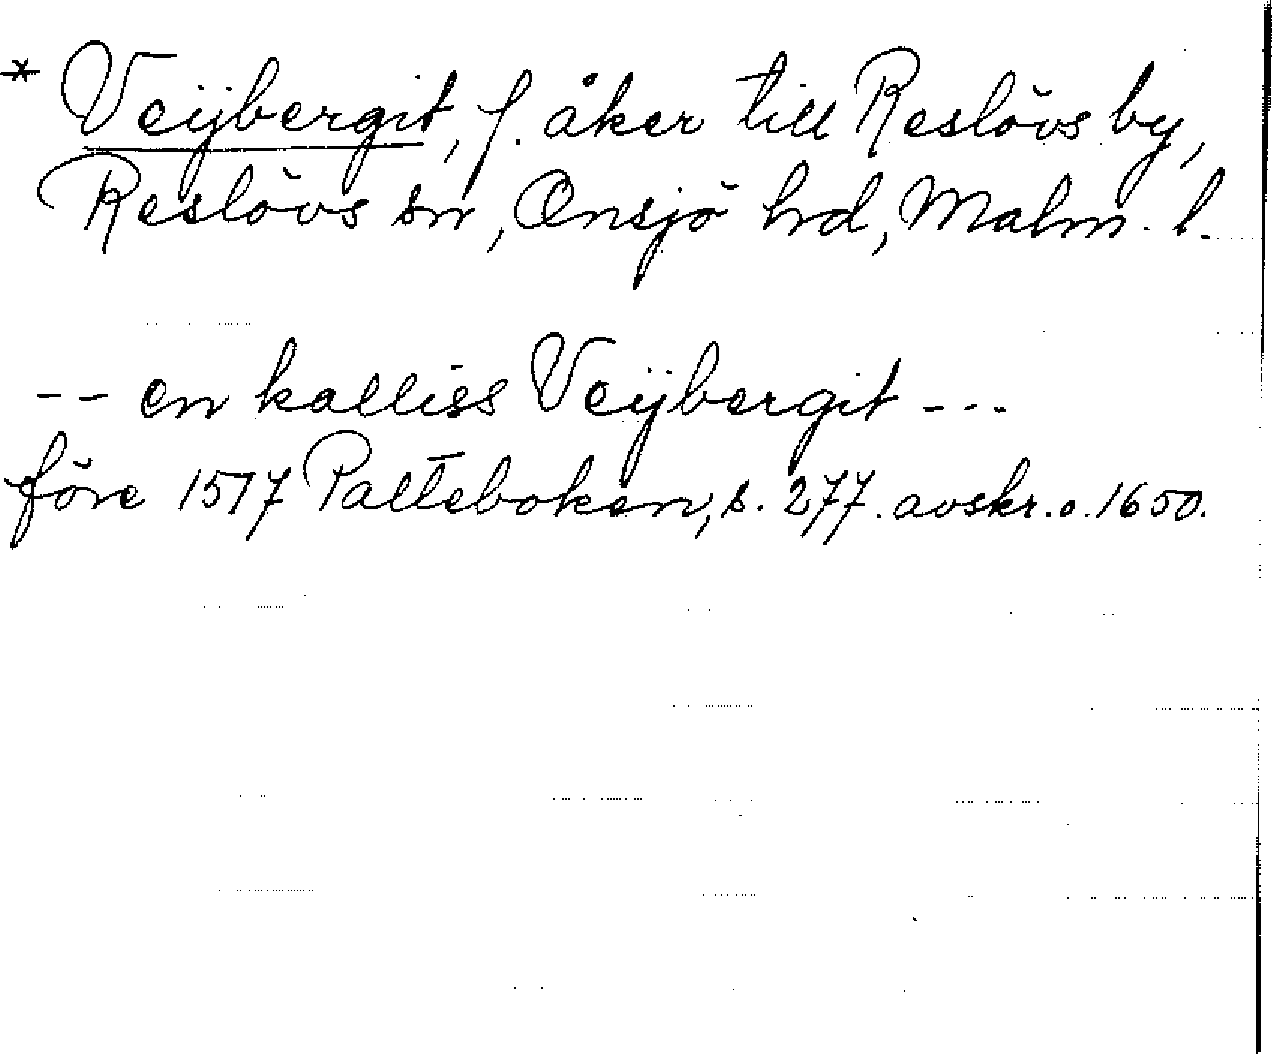 * Veijbergit, f. åker till Reslövs by,
Reslövs sn, Onsjö hd, Malm. l.
-- en kalliss Veijbergit ---
före 1517 Palteboken, s. 277. avskr. o. 1650.